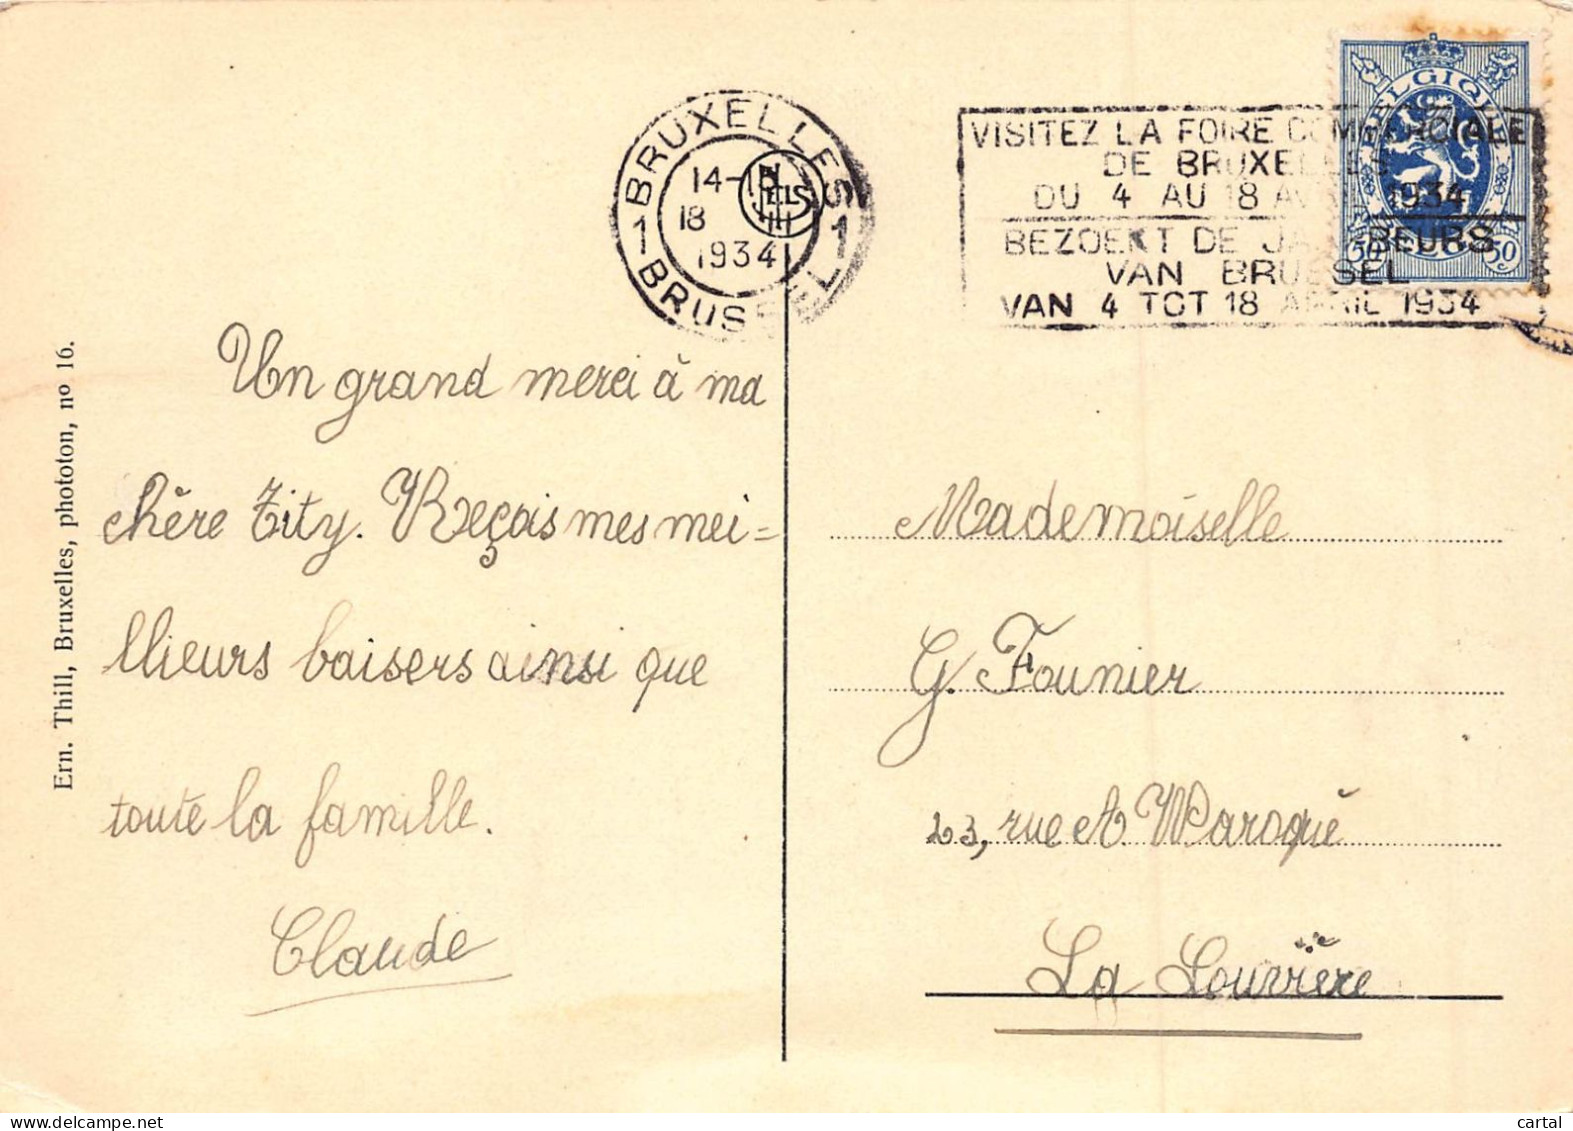 BRUXELLES
14-15
18
1934
1 BRUSSEL 1
NELS
VISITEZ LA FOIRE COMMERCIALE
DE BRUXELLES
DU 4 AU 18 AVRIL 1934
BEZOEKT DE JAARBEURS
VAN BRUSSEL
VAN 4 TOT 18 APRIL 1934
BELGIQUE
BELGIË
50 50
Ern. Thill, Bruxelles, phototon, no 16.
Un grand merci à ma
chère Tity. Reçois mes mei=
llieurs baisers ainsi que
toute la famille.
Claude
Mademoiselle
G. Founier
23, rue A. Waroqué
La Louvière
cartal